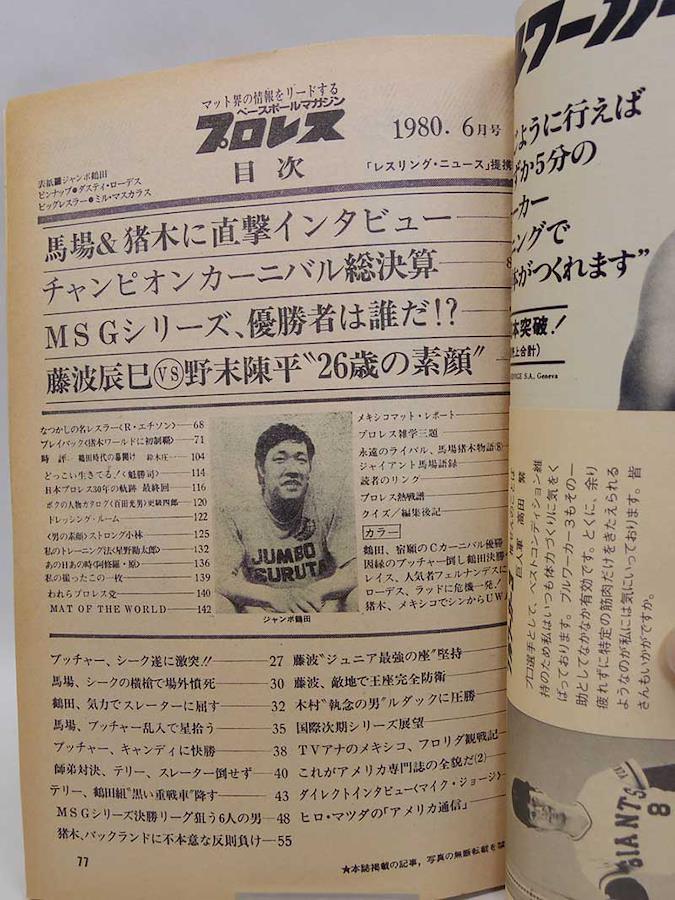 マット界の情報をリードする
ベースボールマガジン
プロレス
1980. 6月号
目次
「レスリング・ニュース」提携
表紙■ジャンボ鶴田
ピンナップ●ダスティ・ローデス
ビッグレスラー●ミル・マスカラス
馬場&猪木に直撃インタビュー
チャンピオンカーニバル総決算
MSGシリーズ、優勝者は誰だ!?
藤波辰巳VS野末陳平〝26歳の素顔〟
なつかしの名レスラー〈R・エチソン〉 68
プレイバック〈猪木ワールドに初制覇〉 71
時評 鶴田時代の幕開け 鈴木庄一 104
どっこい生きてる!〈魁勝司〉 114
日本プロレス30年の軌跡 最終回 116
ボクの人物カタログ〈百田光男〉更級四郎 120
ドレッシング・ルーム 122
〈男の素顔〉ストロング小林 125
私のトレーニング法〈星野勘太郎〉 132
あの日あの時〈阿修羅・原〉 136
私の撮ったこの一枚 139
われらプロレス党 140
MAT OF THE WORLD 142
JUMBO
TSURUTA
ジャンボ鶴田
メキシコマット・レポート
プロレス雑学三題
永遠のライバル、馬場猪木物語(8)
ジャイアント馬場語録
読者のリング
プロレス熱戦譜
クイズ/編集後記
カラー
鶴田、宿願のCカーニバル優勝
因縁のブッチャー倒し鶴田決勝
レイス、人気者フェルナンデスに
ローデス、ラッドに危機一発!
猪木、メキシコでシンからUW
ブッチャー、シーク遂に激突!! 27
馬場、シークの横槍で場外憤死 30
鶴田、気力でスレーターに屈す 32
馬場、ブッチャー乱入で星拾う 35
ブッチャー、キャンディに快勝 38
師弟対決、テリー、スレーター倒せず 40
テリー、鶴田組〝黒い重戦車〟降す 43
MSGシリーズ決勝リーグ狙う6人の男 48
猪木、バックランドに不本意な反則負け 55
藤波〝ジュニア最強の座〟堅持
藤波、敵地で王座完全防衛
木村〝執念の男〟ルダックに圧勝
国際次期シリーズ展望
TVアナのメキシコ、フロリダ観戦記
これがアメリカ専門誌の全貌だ(2)
ダイレクトインタビュー〈マイク・ジョージ〉
ヒロ・マツダの「アメリカ通信」
77
★本誌掲載の記事、写真の無断転載を禁
ルワーカー
ように行えば
か5分の
ーカー
ニングで
体がつくれます”
本突破!
上合計)
RVICE S.A., Geneva
巨人軍 高田 繁
プロ選手として、ベストコンディション維
持のため私はいつも体力つくりに気をく
ばっております。ブルワーカー3もその一
助としてなかなか有効です。とくに、余り
疲れずに特定の筋肉だけをきたえられる
ようなのが私には気にいっております。皆
さんもいかがですか。
GIANTS
8